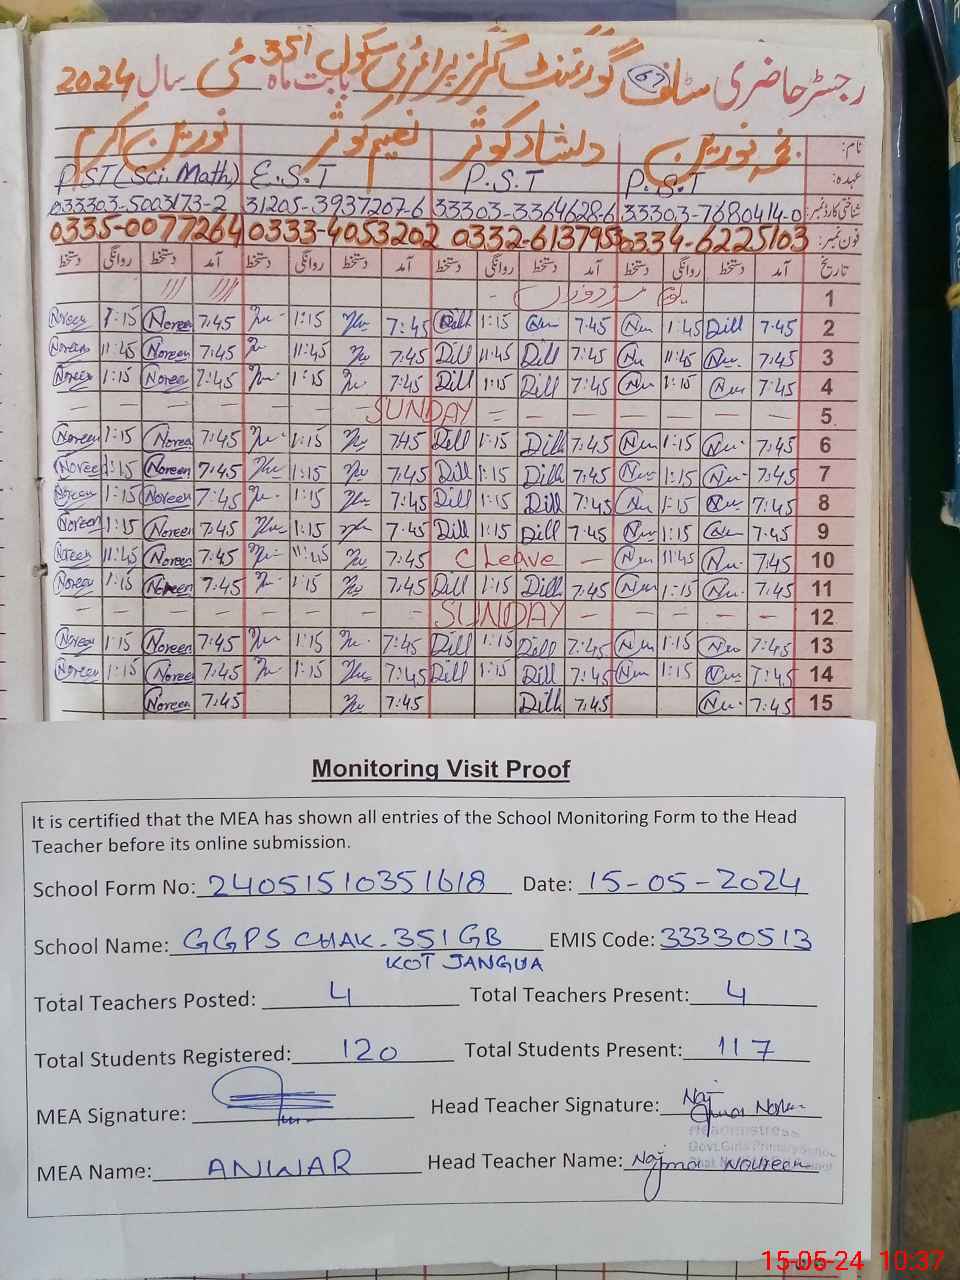 رجسٹر حاضری سٹاف گورنمنٹ گرلز پرائمری سکول 351 بابت ماہ مئی سال 2024
67
نام: نجمہ نورین دلشاد کوثر نسیم کوثر نورین اکرم
عہدہ: P.S.T P.S.T E.S.T PST (Sci. Math)
شناختی کارڈ نمبر: 33303-7680414-0 33303-3364628-6 31205-3937207-6 33303-5003173-2
فون نمبر: 0334-6225103 0332-6137955 0333-4053202 0335-0077264
تاریخ آمد دستخط روانگی دستخط آمد دستخط روانگی دستخط آمد دستخط روانگی دستخط آمد دستخط روانگی دستخط
1 یوم مزدوراں
Noreen 1:15 Noreen 7:45 1:15 7:45 Dill 1:15 7:45 Nu 1:45 Dill 7:45 2
Noreen 11:45 Noreen 7:45 11:45 7:45 Dill 11:45 Dill 7:45 Nu 11:45 Nu 7:45 3
Noreen 1:15 Noreen 7:45 1:15 7:45 Dill 1:15 Dill 7:45 Nu 1:15 Nu 7:45 4
SUNDAY 5
Noreen 1:15 Noreen 7:45 1:15 7:45 Dill 1:15 Dill 7:45 Nu 1:15 Nu 7:45 6
Noreen 1:15 Noreen 7:45 1:15 7:45 Dill 1:15 Dill 7:45 Nu 1:15 Nu 7:45 7
Noreen 1:15 Noreen 7:45 1:15 7:45 Dill 1:15 Dill 7:45 Nu 1:15 Nu 7:45 8
Noreen 1:15 Noreen 7:45 1:15 7:45 Dill 1:15 Dill 7:45 Nu 1:15 7:45 9
Noreen 11:45 Noreen 7:45 11:45 7:45 C Leave – Nu 11:45 Nu 7:45 10
Noreen 1:15 Noreen 7:45 1:15 7:45 Dill 1:15 Dill 7:45 Nu 1:15 Nu 7:45 11
SUNDAY 12
Noreen 1:15 Noreen 7:45 1:15 7:45 Dill 1:15 Dill 7:45 Nu 1:15 Nu 7:45 13
Noreen 1:15 Noreen 7:45 1:15 7:45 Dill 1:15 Dill 7:45 Nu 1:15 Nu 7:45 14
Noreen 7:45 7:45 Dill 7:45 Nu 7:45 15
Monitoring Visit Proof
It is certified that the MEA has shown all entries of the School Monitoring Form to the Head
Teacher before its online submission.
School Form No: 24051510351618 Date: 15-05-2024
School Name: GGPS CHAK. 351 GB EMIS Code: 33330513
KOT JANGUA
Total Teachers Posted: 4 Total Teachers Present: 4
Total Students Registered: 120 Total Students Present: 117
MEA Signature: Head Teacher Signature:
Headmistress
Govt. Girls Primary School
MEA Name: ANWAR Head Teacher Name: Najma Noureen
15-05-24 10:37